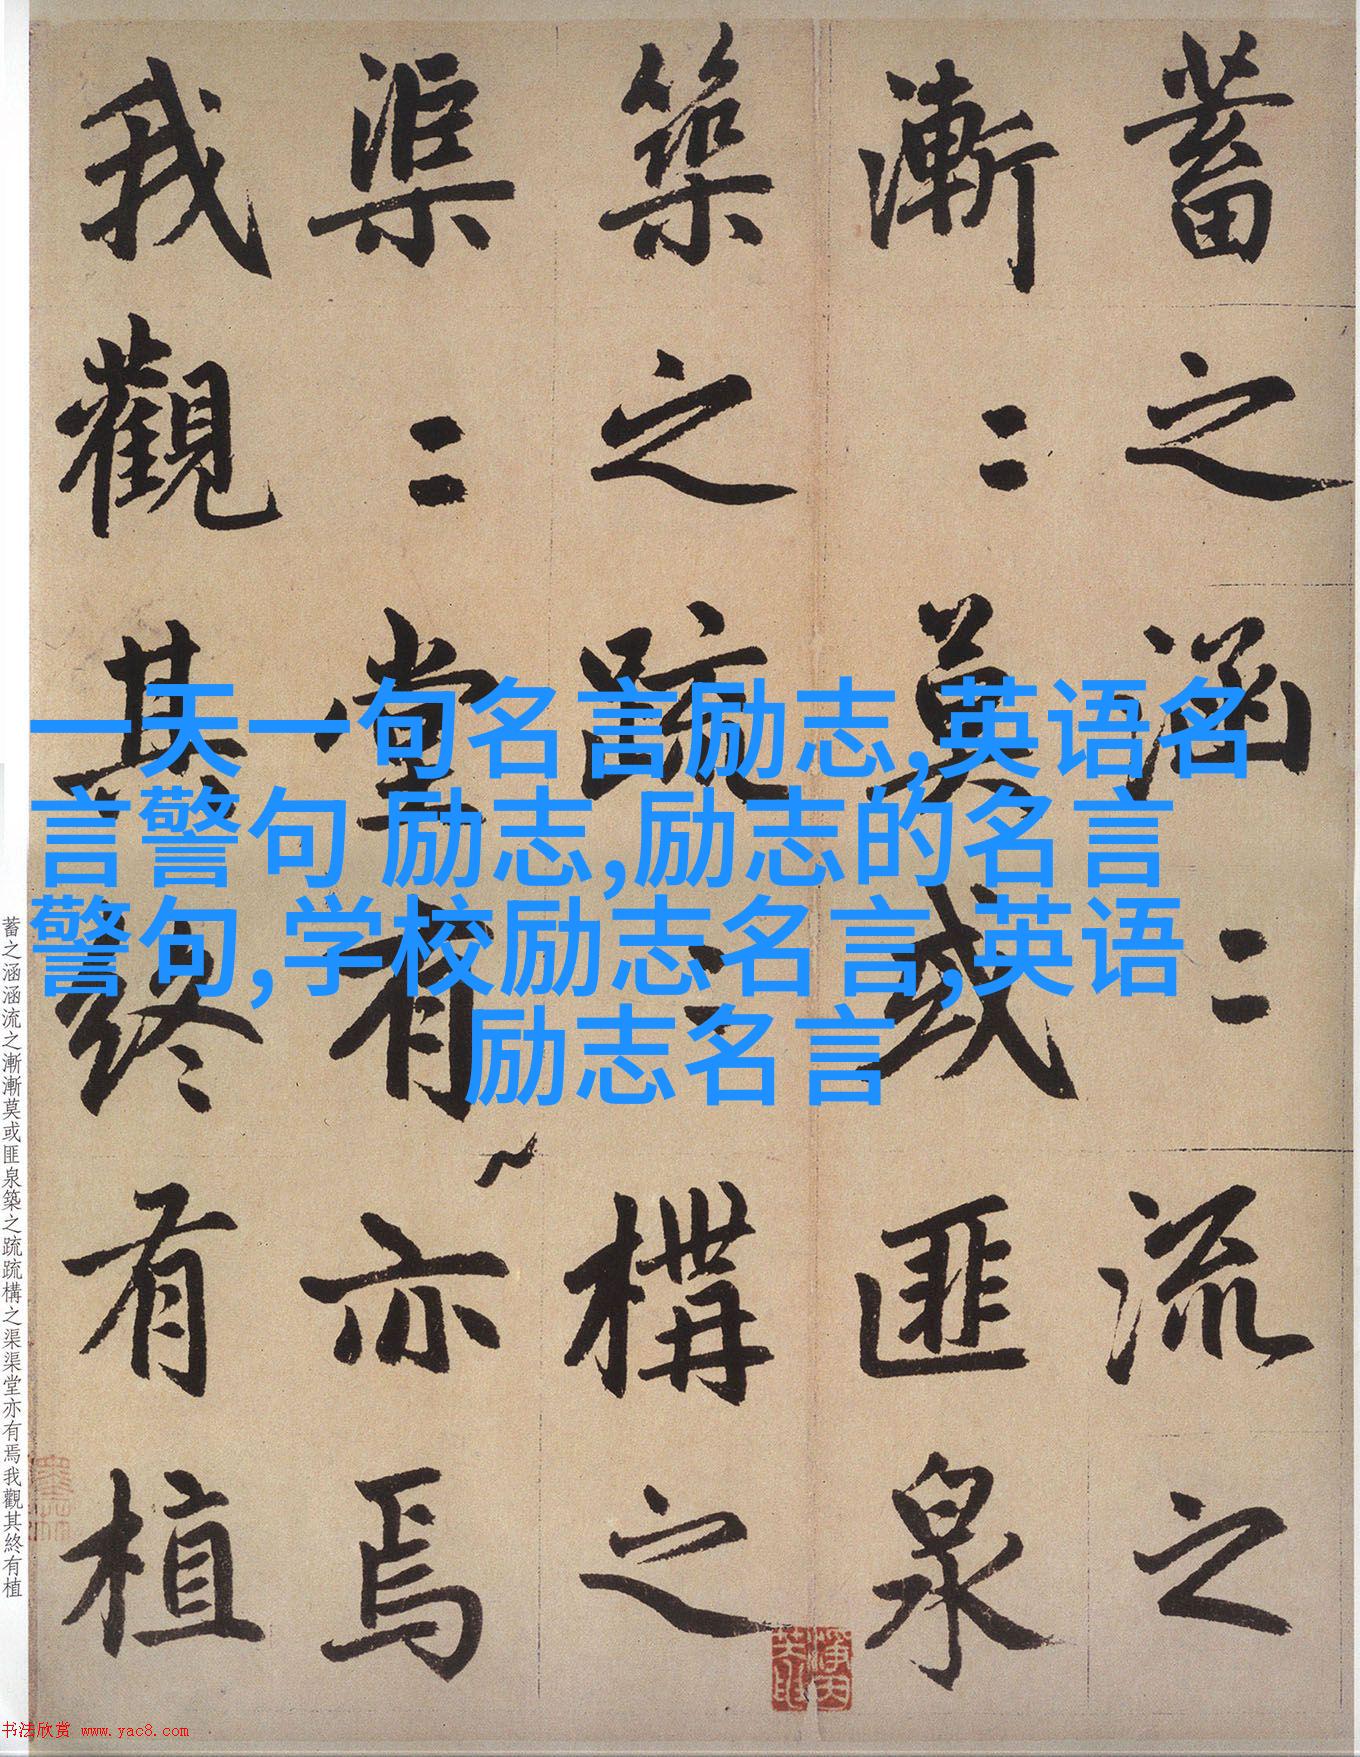 蓄之涵〻流之
漸〻莫或匪泉
築之疏〻構之
渠〻堂有亦焉
我觀其終有植
一天一句名言励志,英语名
言警句 励志,励志的名言
警句,学校励志名言,英语
励志名言
蓄之涵涵流之漸漸莫或匪泉築之疏疏構之渠渠堂亦有焉我觀其終有植
书法欣赏 www.yac8.com